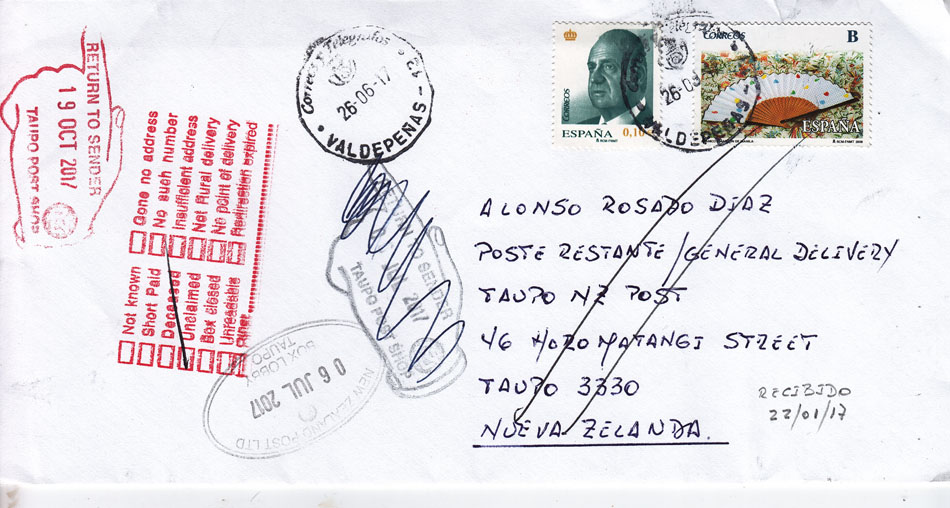 RETURN TO SENDER
19 OCT 2017
TAUPO POST SHOP
Gone no address
No such number
Insufficient address
Not Rural delivery
No point of delivery
Redirection expired
Not known
Short Paid
Deceased
Unclaimed
Box closed
Unreadable
Other
Correos y Telégrafos
26-06-17
VALDEPEÑAS
CORREOS
ESPAÑA
0,10
CORREOS
B
ESPAÑA
VALDEPEÑAS
RETURN TO SENDER
JUL 2017
TAUPO POST SHOP
NEW ZEALAND POST LTD
06 JUL 2017
BOX LOBBY
TAUPO
ALONSO ROSADO DIAZ
POSTE RESTANTE/GENERAL DELIVERY
TAUPO NZ POST
46 HOROMATANGI STREET
TAUPO 3330
NUEVA ZELANDA.
RECIBIDO
22/01/17